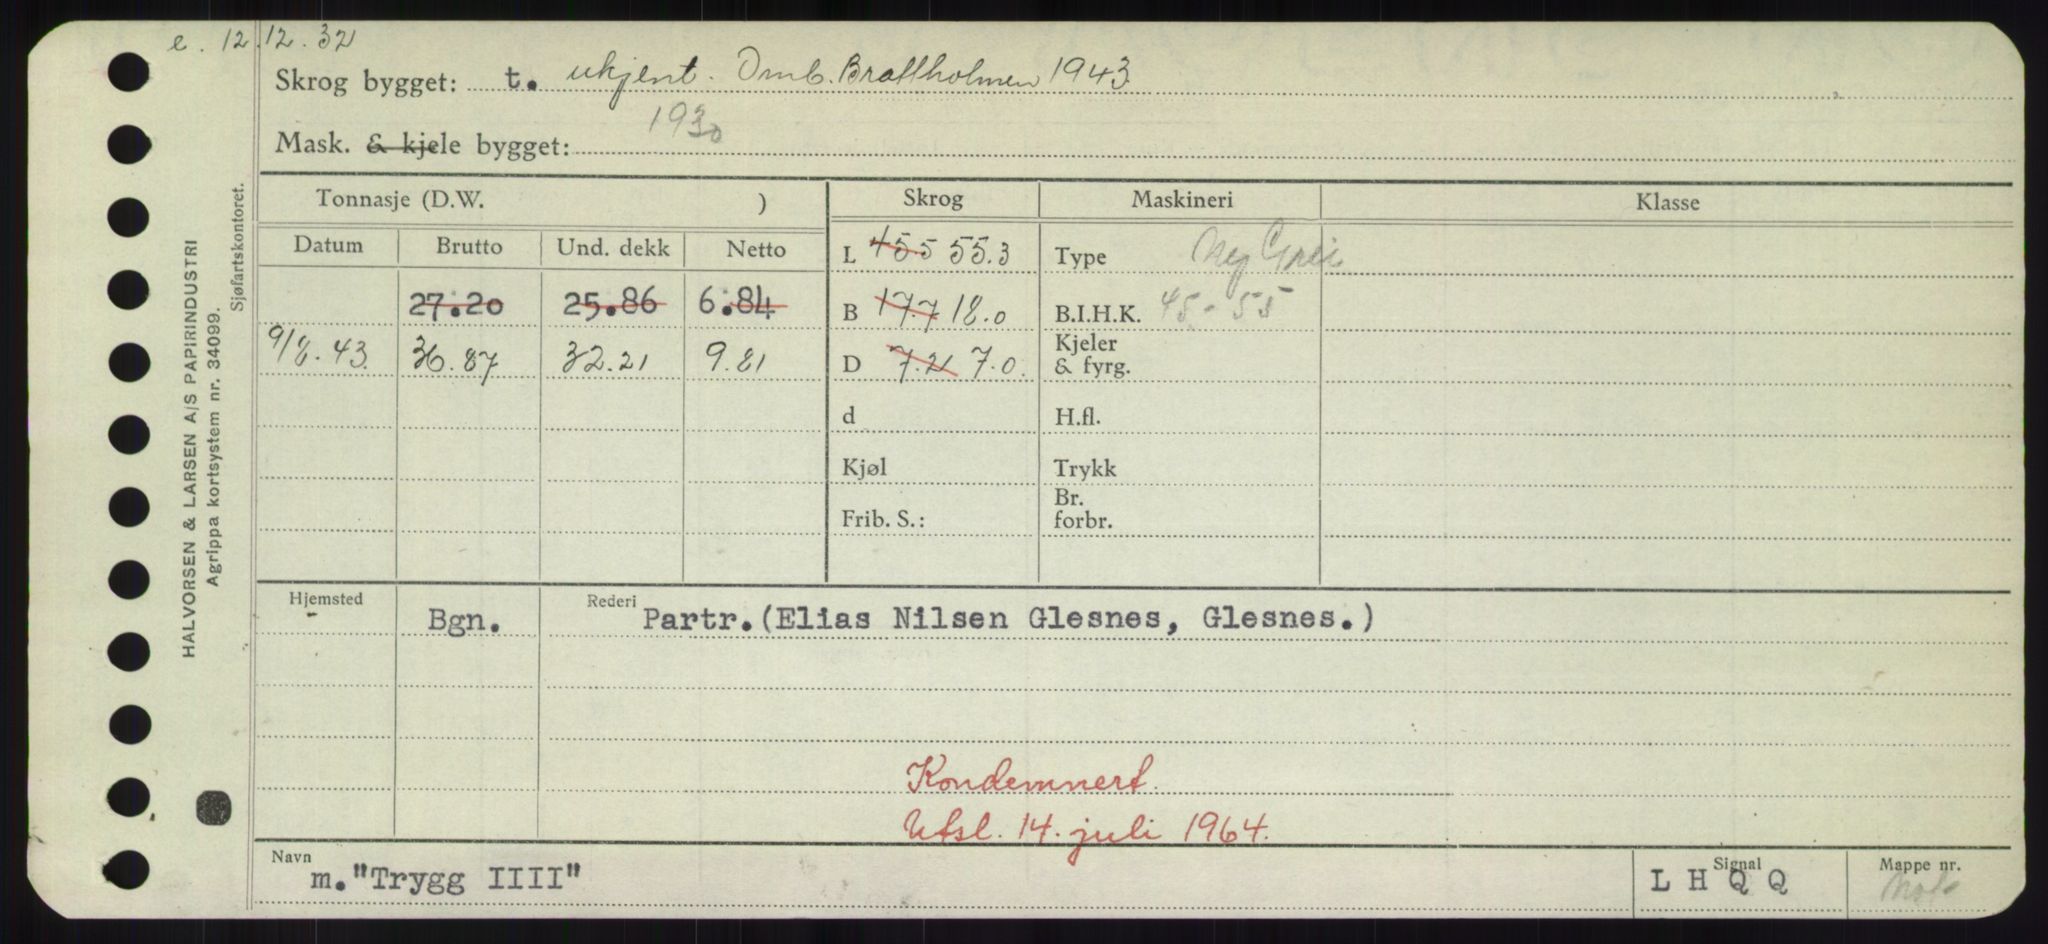 e. 12.12.32
Skrog bygget: t. ukjent. Omb. Brattholmen 1943
Mask. & kjele bygget: 1930
HALVORSEN & LARSEN A/S PAPIRINDUSTRI
Agrippa kortsystem nr. 34099.
Sjøfartskontoret.
Tonnasje (D.W. ) Skrog Maskineri Klasse
Datum Brutto Und. dekk Netto
L 45.5 55.3 Type
27.20 25.86 6.84 B 17.7 18.0 B.I.H.K. 45-55
9/8.43 36.87 32.21 9.81 D 7.21 7.0. Kjeler & fyrg.
d H.fl.
Kjøl Trykk
Frib. S.: Br. forbr.
Hjemsted Bgn. Rederi Partr.(Elias Nilsen Glesnes, Glesnes.)
Kondemnert.
Utsl. 14. juli 1964.
Navn m."Trygg IIII" Signal L H Q Q Mappe nr.